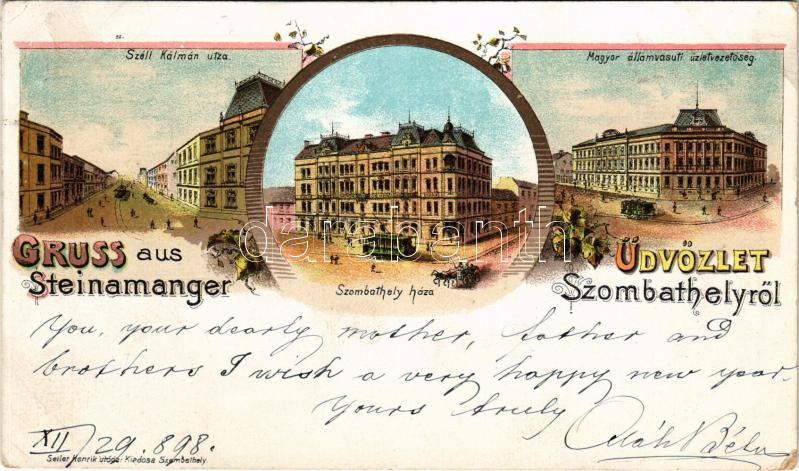 Széll Kálmán utza.
Magyar államvasuti üzletvezetöség.
GRUSS aus
Steinamanger
Szombathely háza
ÜDVÖZLET
Szombathelyről
darabanth
You, your dearly mother, father and
brothers I wish a very happy new year.
Yours truly
XII/29. 898.
Béla
Seiler Henrik utóda: Kiadosa Szombathely.